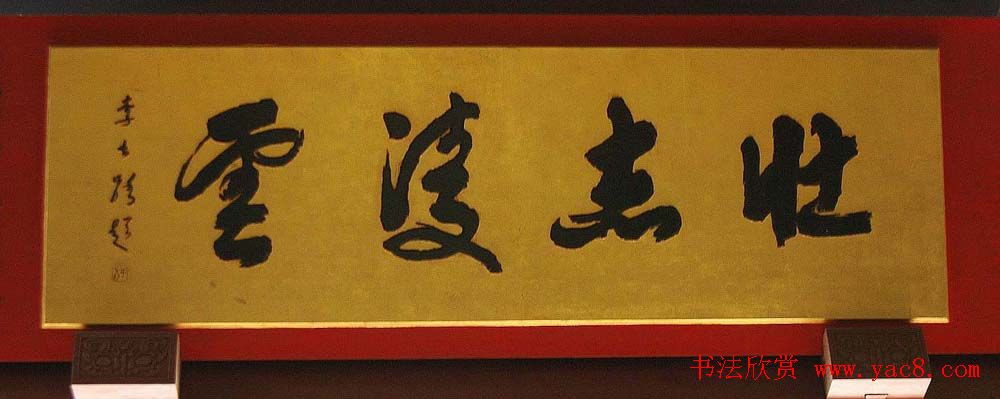 壯志凌雲
李士蹻題
书法欣赏 www.yac8.com